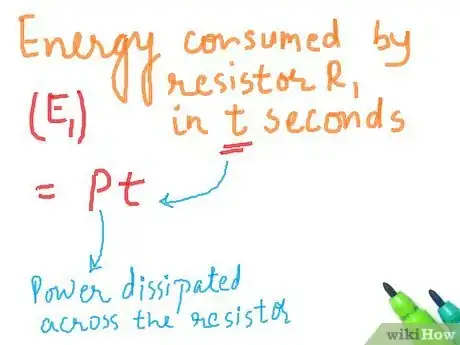 Energy consumed by
resistor R₁
(E₁) in t seconds
= Pt
Power dissipated
across the resistor
wikiHow